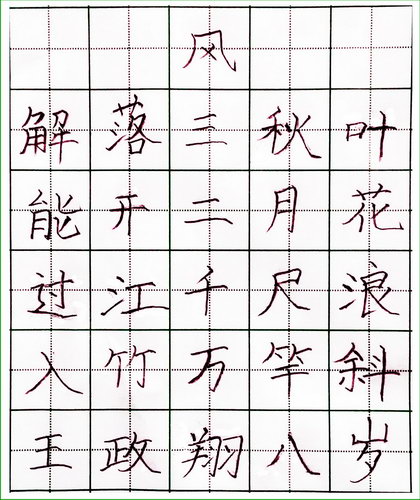 风
解落三秋叶
能开二月花
过江千尺浪
入竹万竿斜
王政翔八岁